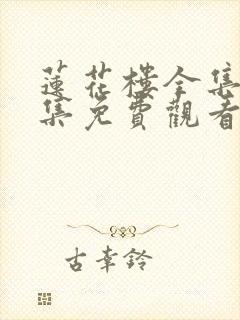 蓮花樓全集
集免費觀看
古幸鈴